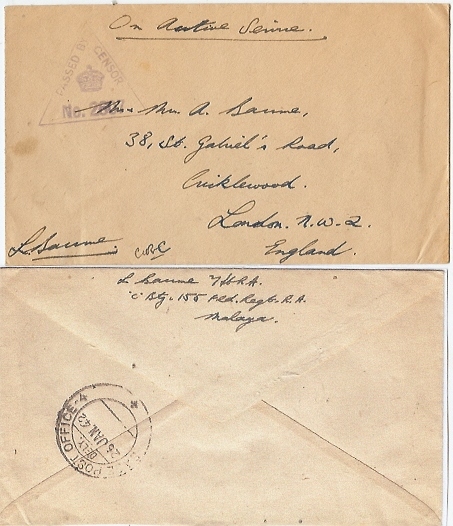 On Active Service.
PASSED BY CENSOR
No.
Mrs. A. Baume,
38, St. Gabriel's Road,
Cricklewood.
London. N.W.2.
England.
L. Baume.
L Baume
"C" Bty. 155 Fld. Regt. R.A.
Malaya.
POST OFFICE
DELY.
26 JAN. 42